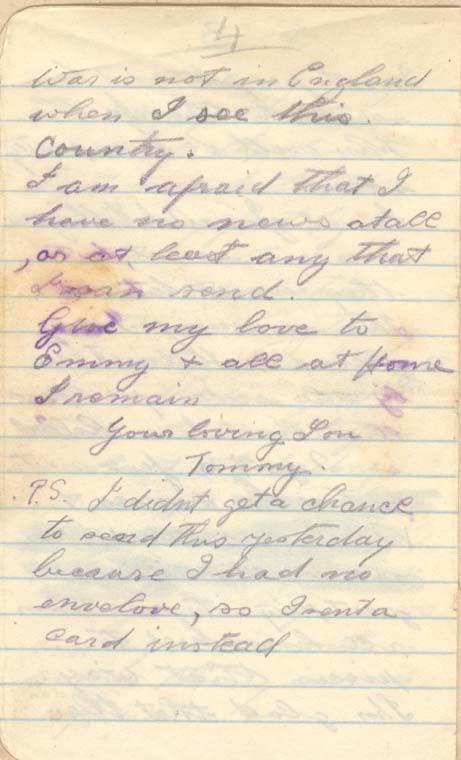 4
War is not in England
when I see this.
Country.
I am afraid that I
have no news atall
, or at least any that
I can send.
Give my love to
Emmy + all at Home
I remain
Your loving Son
Tommy.
P.S. I didnt get a chance
to send this yesterday
because I had no
envelove, so I sent a
card instead